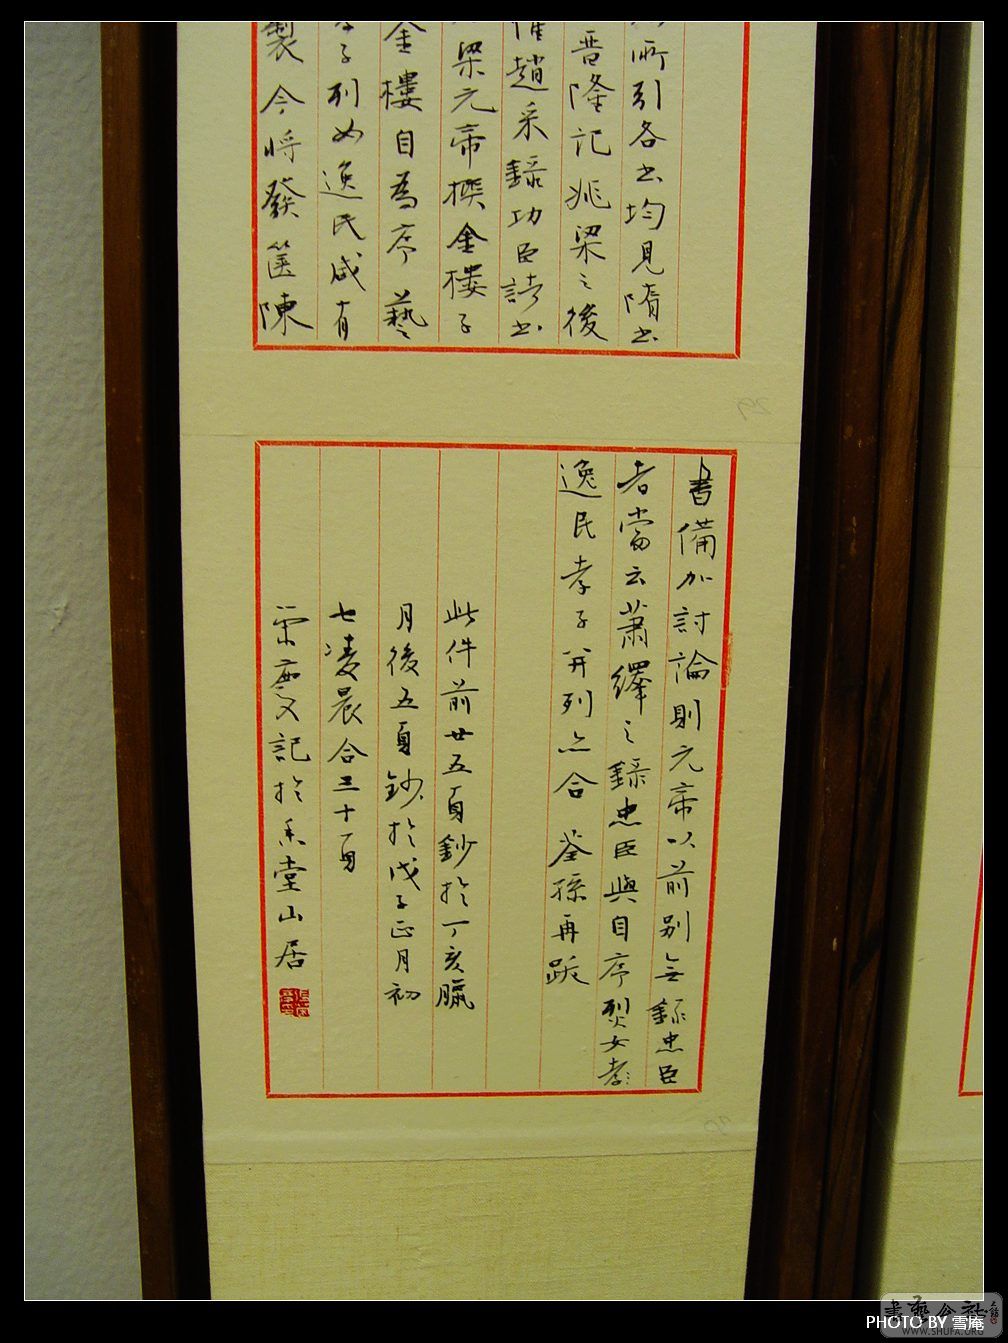 所引各书均見隋书
晋隆記兆梁之後
趙采錄功臣請书
梁元帝撰金樓子
金樓自為序藝
子列女逸民咸有
製今將發篋陳
書備加討論則元帝以前別無錄忠臣
者當云蕭繹之錄忠臣與自序烈女孝子
逸民孝子并列亦合 荃孫再跋
此件前廿五頁鈔於丁亥臘
月後五頁鈔於戊子正月初
七凌晨合三十頁
榮慶記於禾堂山居
PHOTO BY 雪庵
WWW.SHUFA.ORG